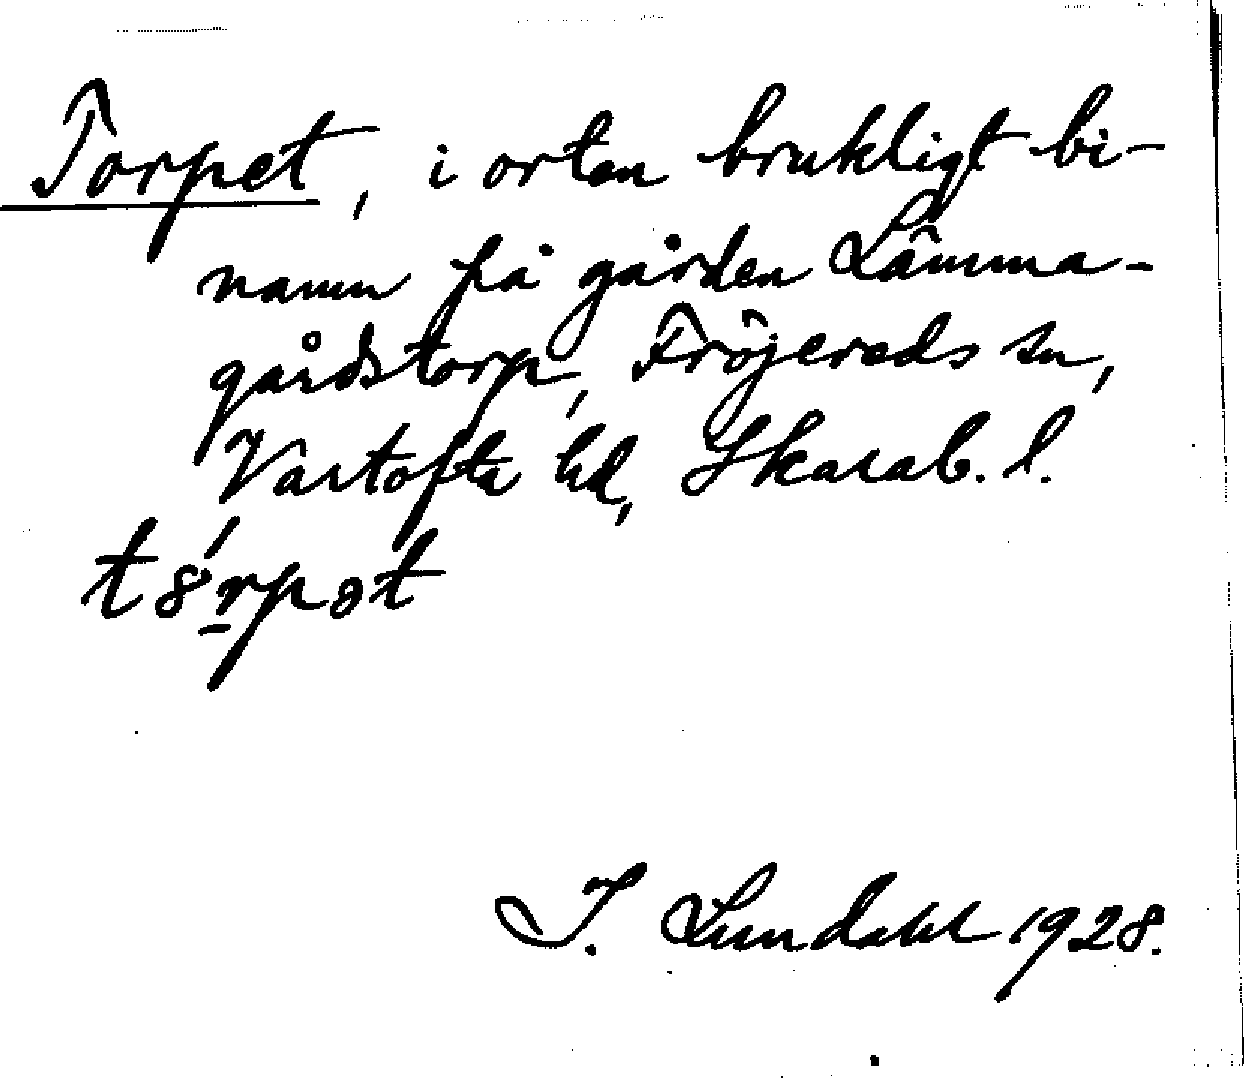 Torpet, i orten brukligt bi-
namn på gården Lämma-
gårdstorp, Fröjereds sn,
Vartofta hd, Skarab. l.
t8́rpət
I. Lundahl 1928.